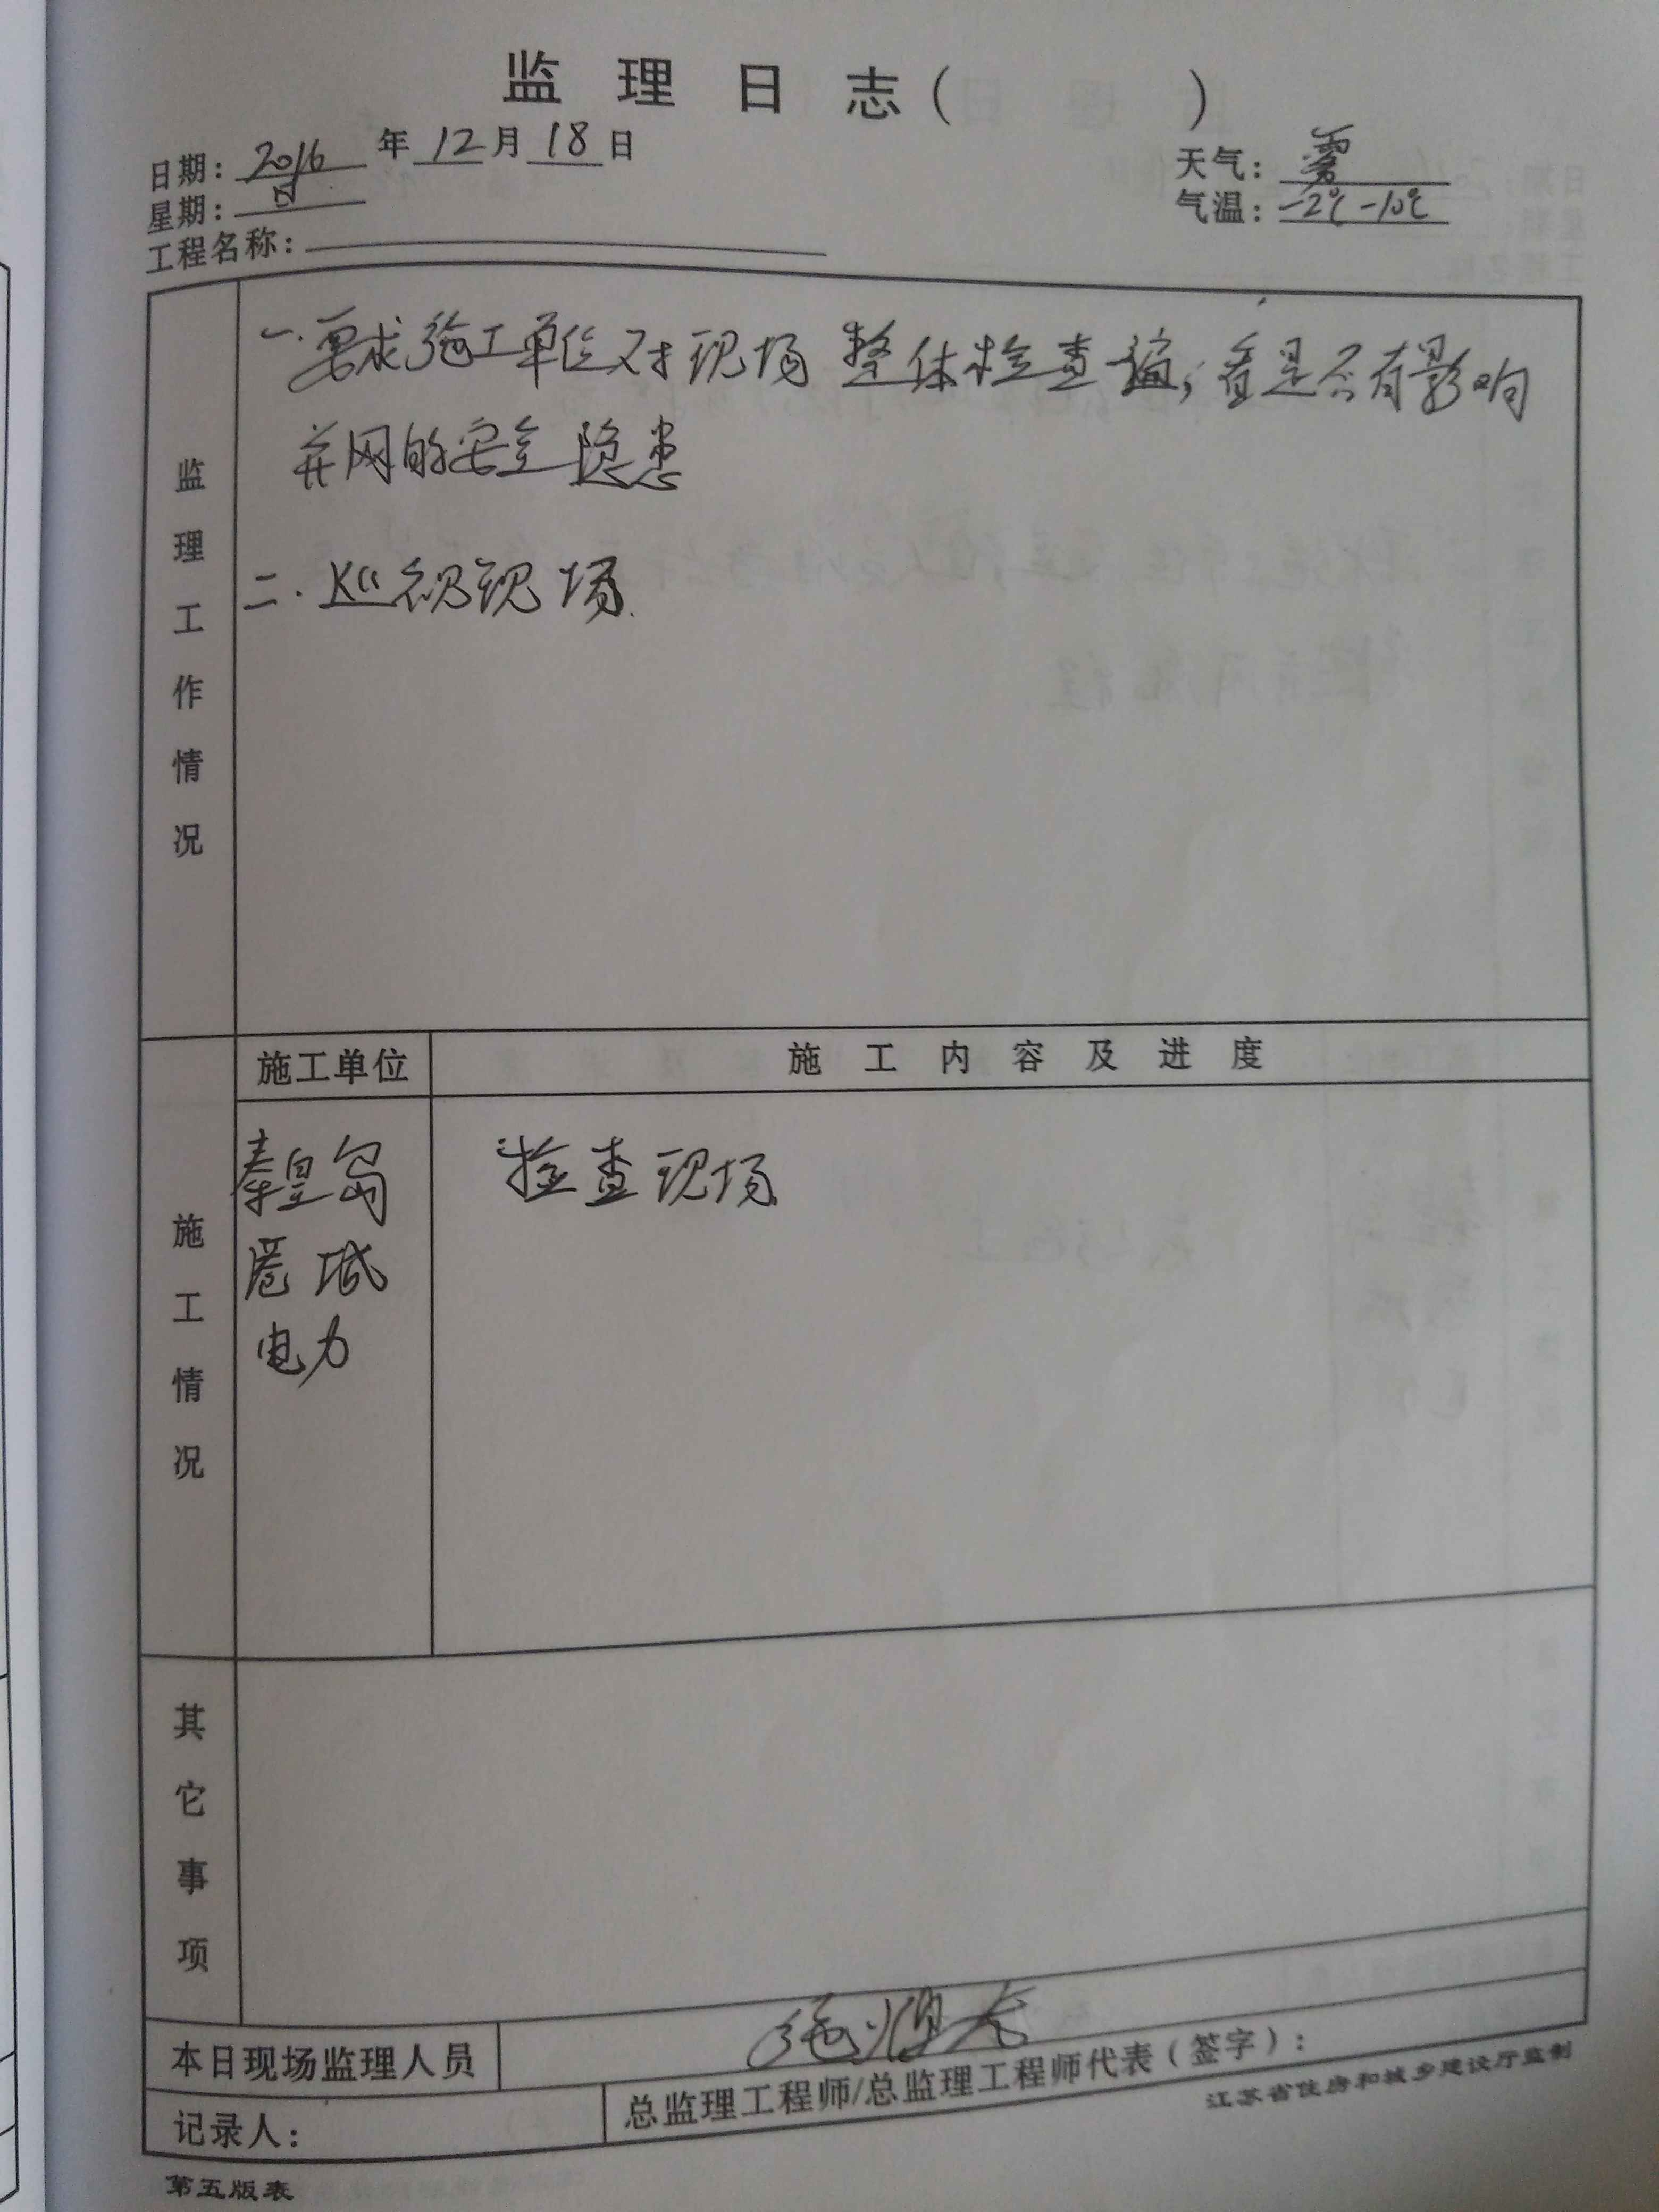 监理日志（ ）
日期：2016年12月18日
天气：雾
星期：日
气温：-2℃-10℃
工程名称：
监理工作情况
一.要求施工单位对现场整体检查遍，看是否有影响
并网的安全隐患
二.巡视现场.
施工情况
施工单位
施工内容及进度
秦皇岛
电力
检查现场
其它事项
本日现场监理人员
记录人：
总监理工程师/总监理工程师代表（签字）：
江苏省住房和城乡建设厅监制
第五版表